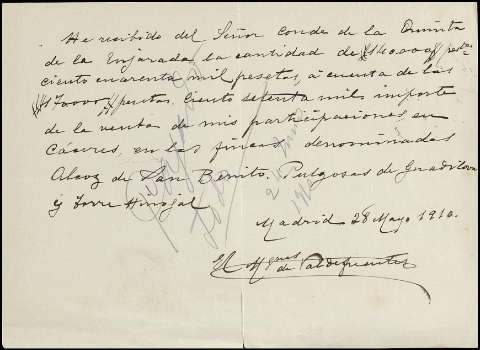 He recibido del Señor Conde de la Quinta
de la Enjarada la cantidad de #140.000# pesetas
ciento cuarenta mil pesetas, a cuenta de las
#170.000# pesetas. Ciento setenta mil importe
de la venta de mis participaciones en
Cáceres, en las fincas denominadas
Alcoz de San Benito, Pulgosas de Guadiloba
y Torre Hinojal
Madrid 28 Mayo 1910.
El Mqués
de Valdefuentes